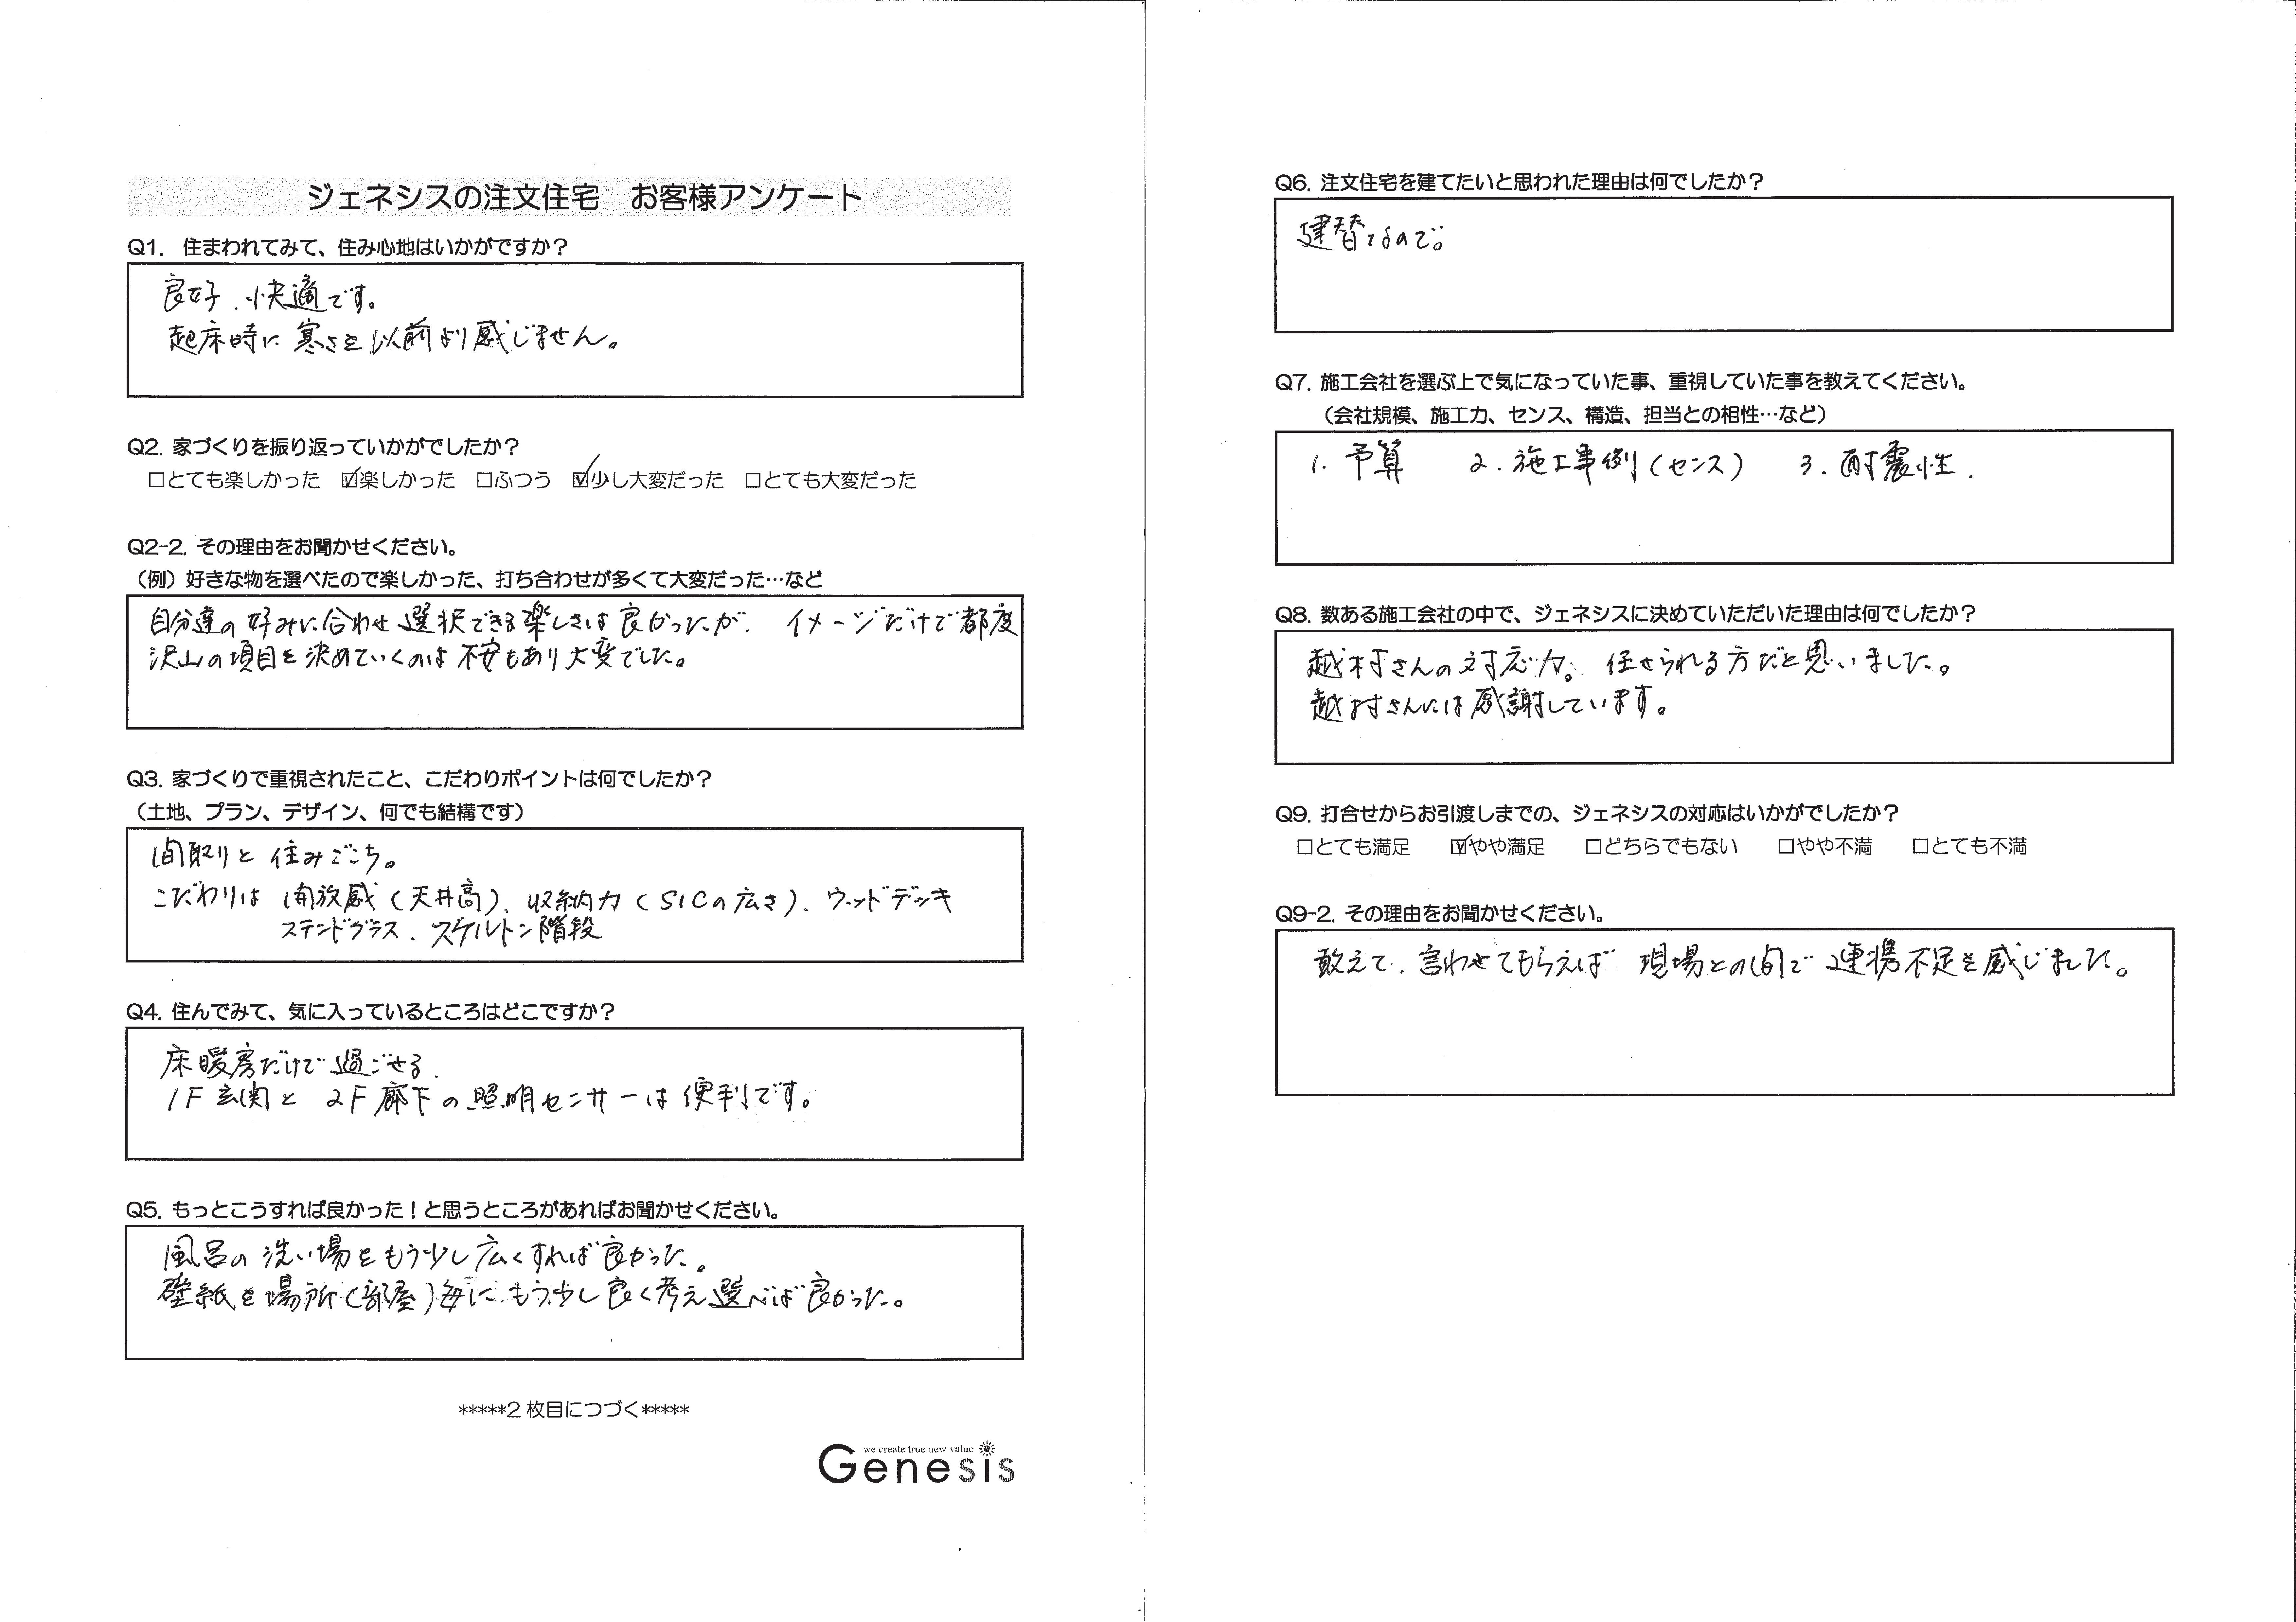 ジェネシスの注文住宅　お客様アンケート
Q1. 住まわれてみて、住み心地はいかがですか？
良好、快適です。
起床時に寒さを以前より感じません。
Q2. 家づくりを振り返っていかがでしたか？
□とても楽しかった ☑楽しかった □ふつう ☑少し大変だった □とても大変だった
Q2-2. その理由をお聞かせください。
（例）好きな物を選べたので楽しかった、打ち合わせが多くて大変だった…など
自分達の好みに合わせ選択できる楽しさは良かったが、イメージだけで都度
沢山の項目を決めていくのは不安もあり大変でした。
Q3. 家づくりで重視されたこと、こだわりポイントは何でしたか？
（土地、プラン、デザイン、何でも結構です）
間取りと住みごこち。
こだわりは 開放感（天井高）、収納力（SICの広さ）、ウッドデッキ
ステンドグラス、スケルトン階段
Q4. 住んでみて、気に入っているところはどこですか？
床暖房だけで過ごせる.
1F玄関と 2F廊下の照明センサーは便利です。
Q5. もっとこうすれば良かった！と思うところがあればお聞かせください。
風呂の洗い場をもう少し広くすれば良かった。
壁紙を場所（部屋）毎にもう少し良く考え選べば良かった。
*****2枚目につづく*****
we create true new value
Genesis
Q6. 注文住宅を建てたいと思われた理由は何でしたか？
建替なので。
Q7. 施工会社を選ぶ上で気になっていた事、重視していた事を教えてください。
（会社規模、施工力、センス、構造、担当との相性…など）
1. 予算 2. 施工事例（センス） 3. 耐震性.
Q8. 数ある施工会社の中で、ジェネシスに決めていただいた理由は何でしたか？
越村さんの対応力。任せられる方だと思いました。
越村さんには感謝しています。
Q9. 打合せからお引渡しまでの、ジェネシスの対応はいかがでしたか？
□とても満足 ☑やや満足 □どちらでもない □やや不満 □とても不満
Q9-2. その理由をお聞かせください。
敢えて、言わせてもらえば 現場との間で連携不足を感じました。